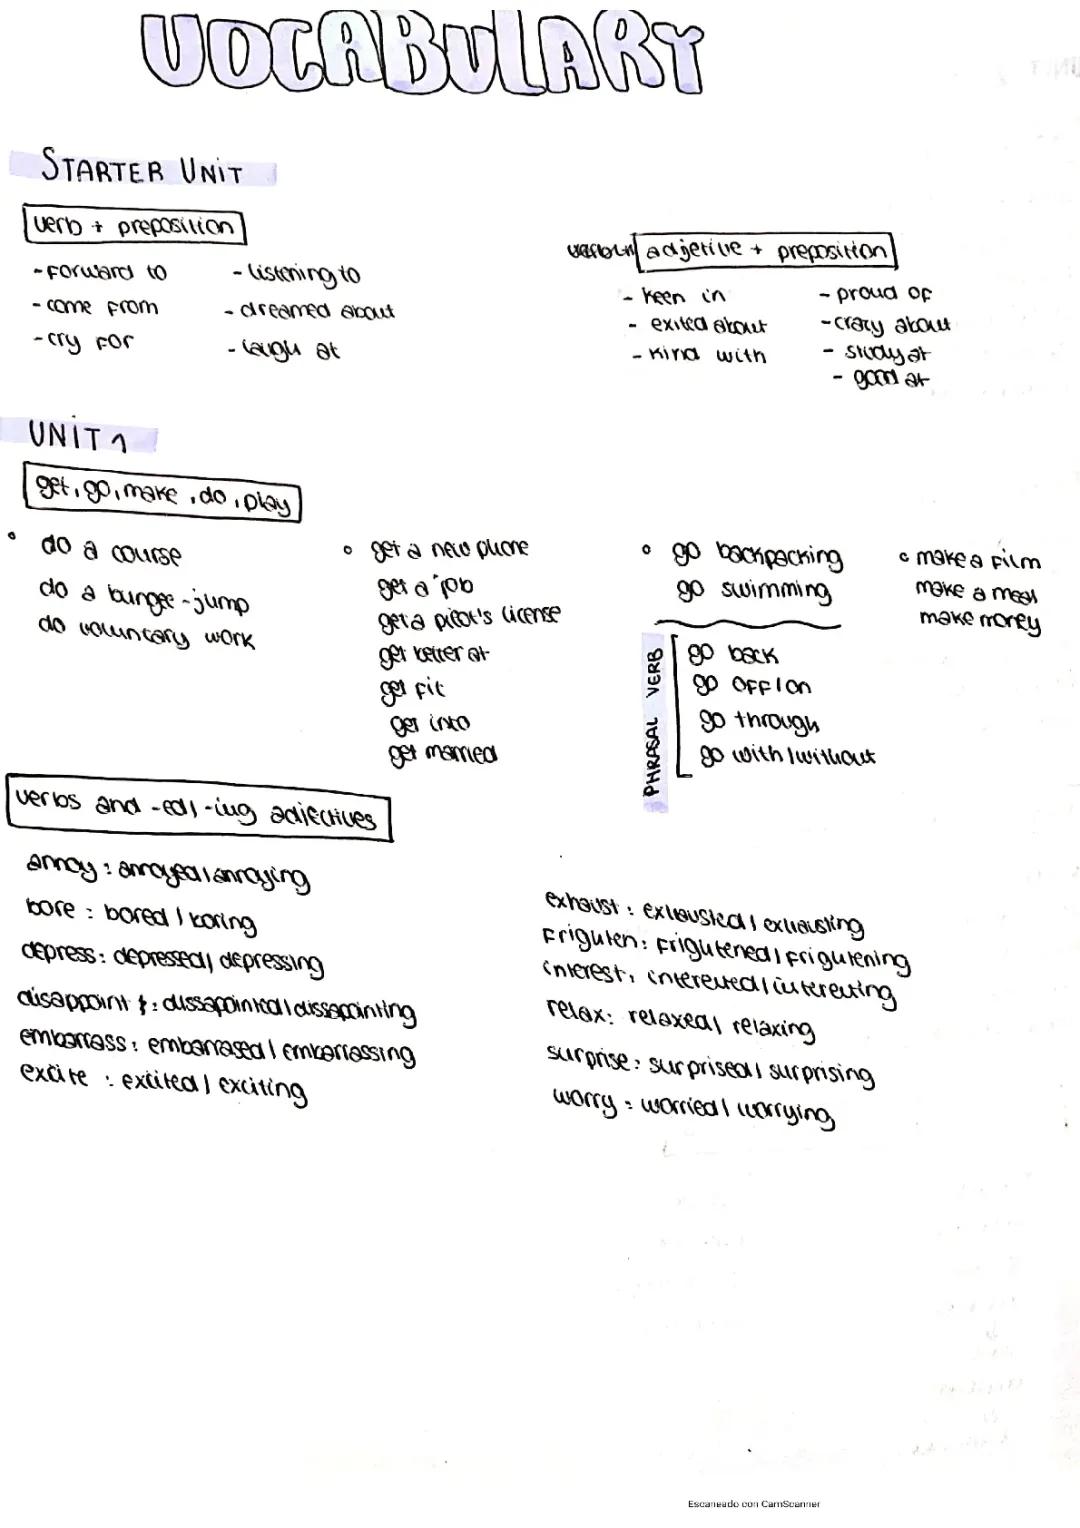 VOCABULARY
STARTER UNIT
verb + preposition
- forward to
- come from
- cry for
- listening to
- dreamed about
- laugh at
adjetive + preposition
- keen in
- exited about
- kind with
- proud of
- crazy about
- study at
- good at
UNIT 1
get, go, make, do, play
• do a course
do a bungee-jump
do voluntary work
• get a new phone
get a job
get a pilot's license
get better at
get fit
get into
get married
• go backpacking
go swimming
PHRASAL VERB
go back
go off/on
go through
go with/without
• make a film
make a meal
make money
verbs and -ed/-ing adjectives
annoy: annoyed/annoying
bore: bored/boring
depress: depressed/depressing
disappoint: dissapointed/dissapointing
embarrass: embarrased/embarrassing
excite: excited/exciting
exhaust: exhausted/exhausting
frighten: frightened/frightening
interest: interested/interesting
relax: relaxed/relaxing
surprise: surprised/surprising
worry: worried/worrying
Escaneado con CamScanner